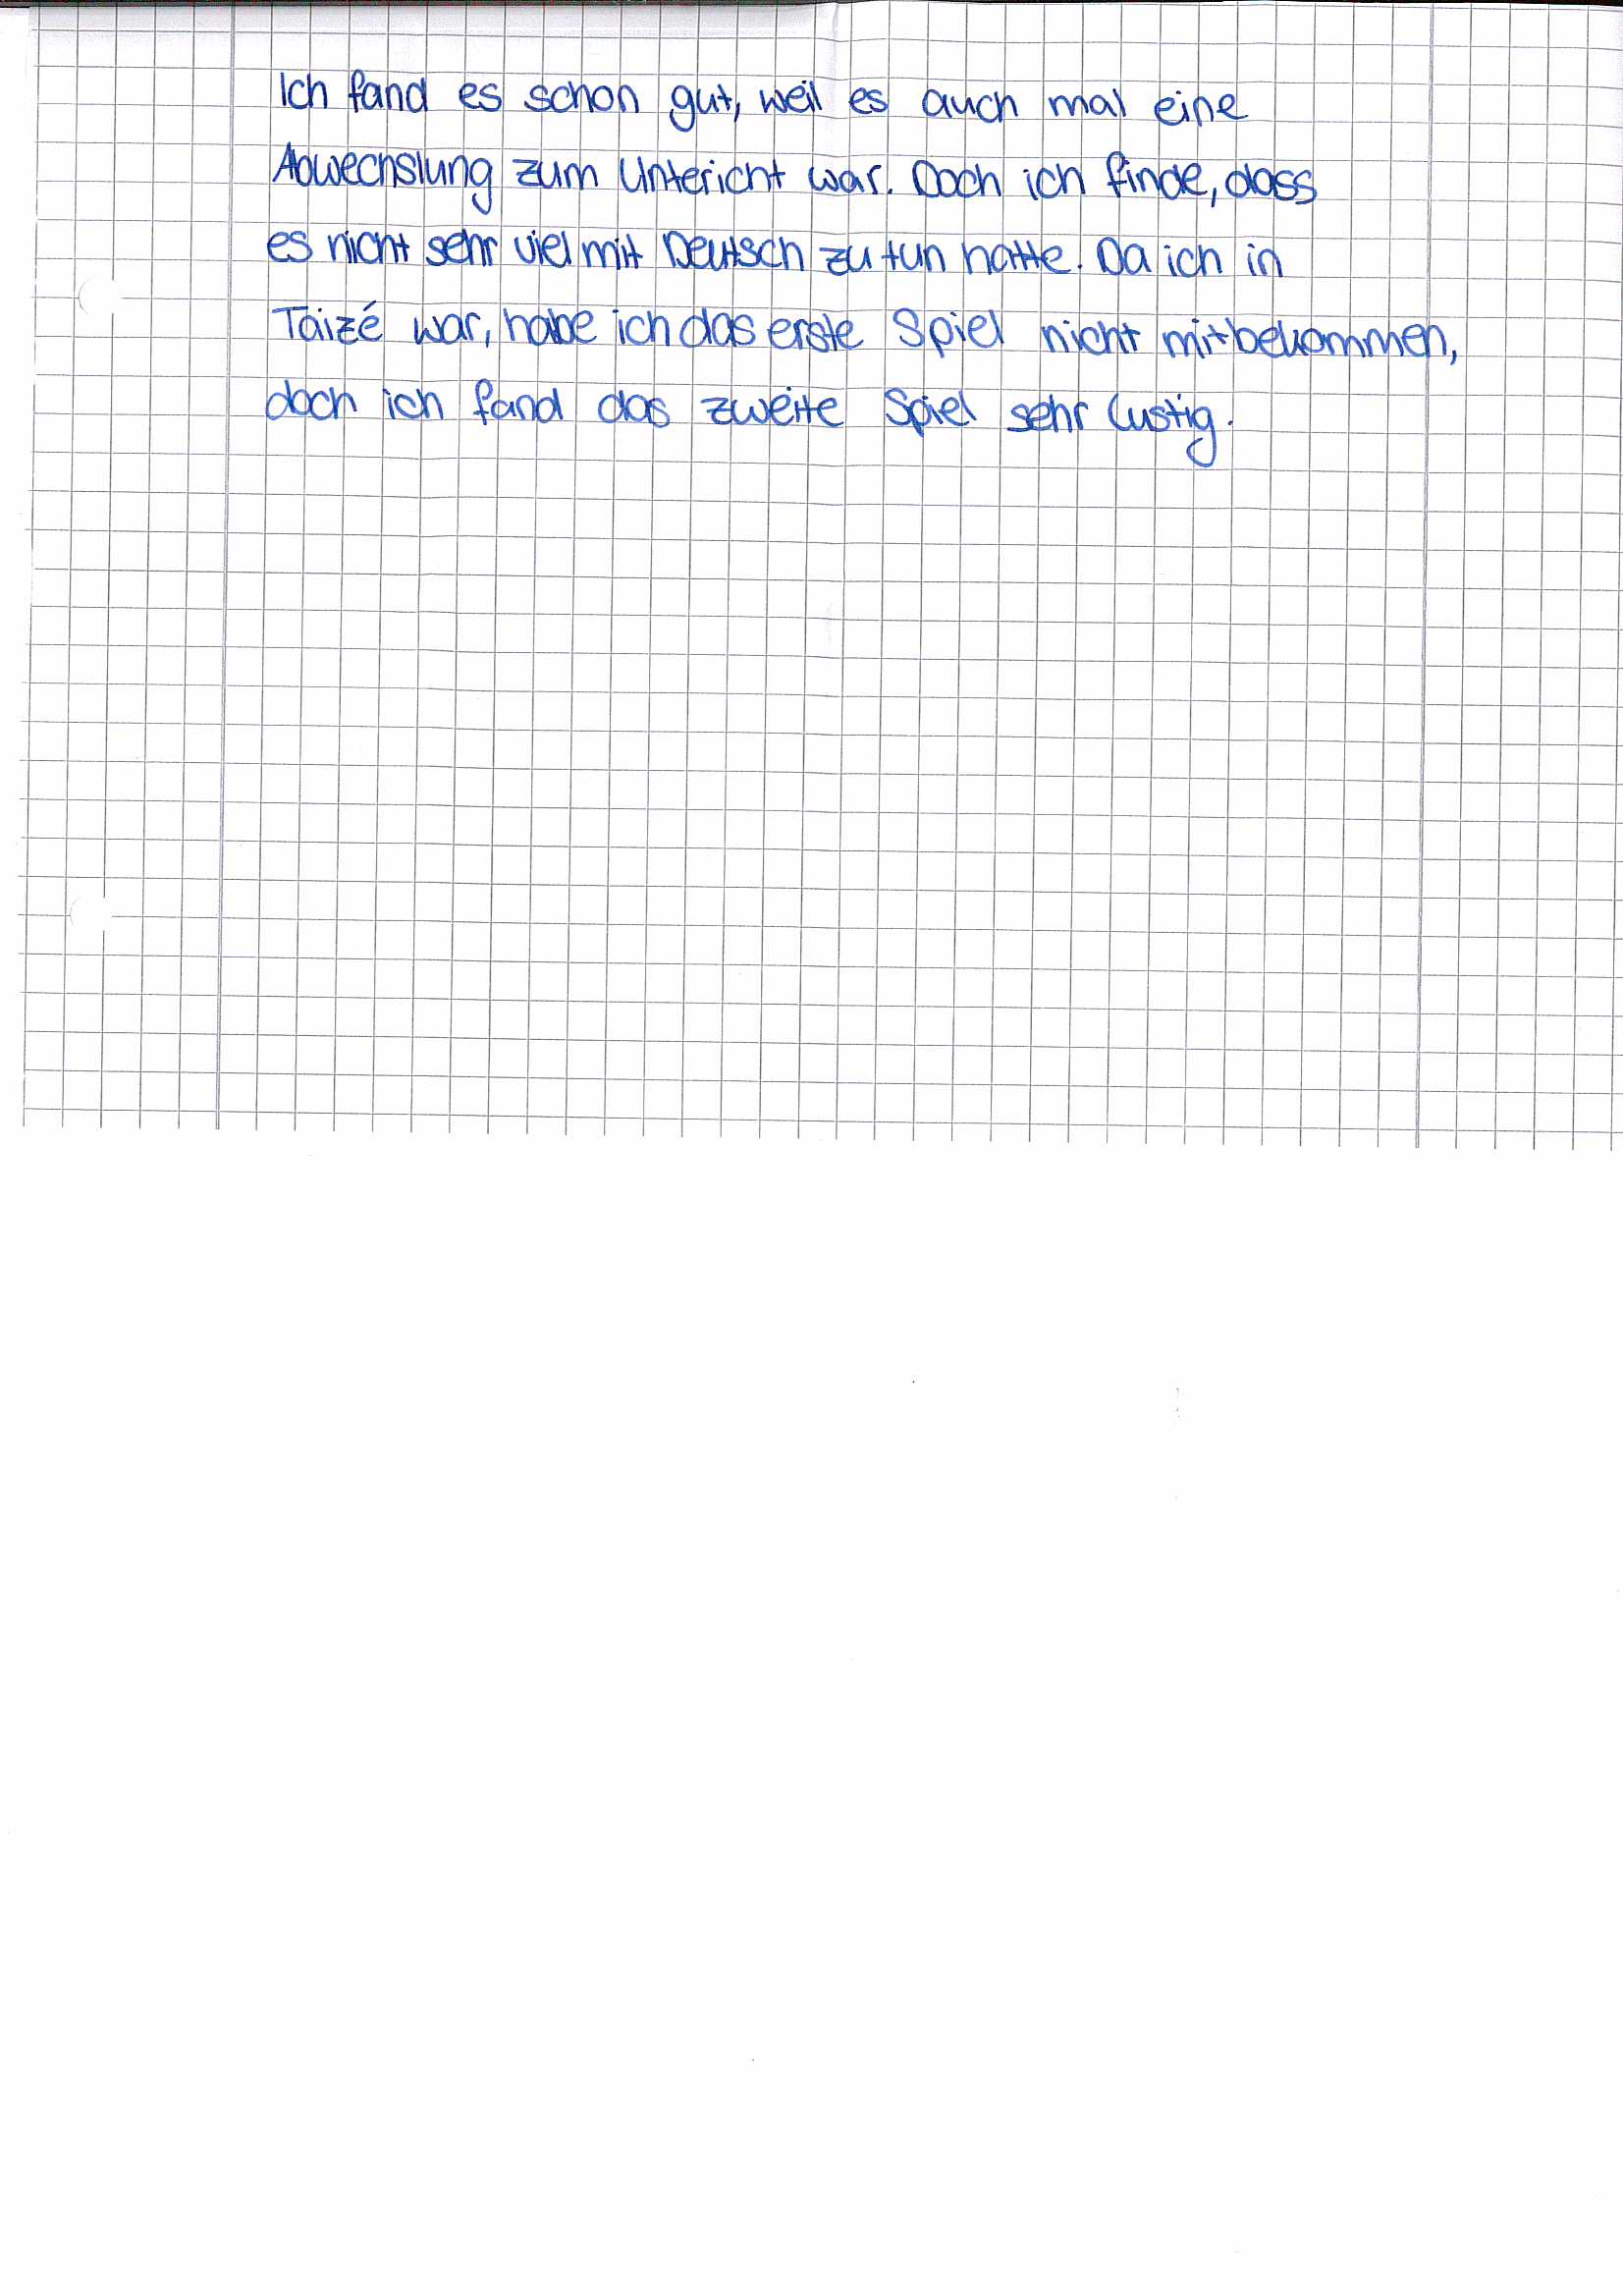 Ich fand es schon gut, weil es auch mal eine
Abwechslung zum Untericht war. Doch ich finde, dass
es nicht sehr viel mit Deutsch zu tun hatte. Da ich in
Taizé war, habe ich das erste Spiel nicht mitbekommen,
doch ich fand das zweite Spiel sehr lustig.